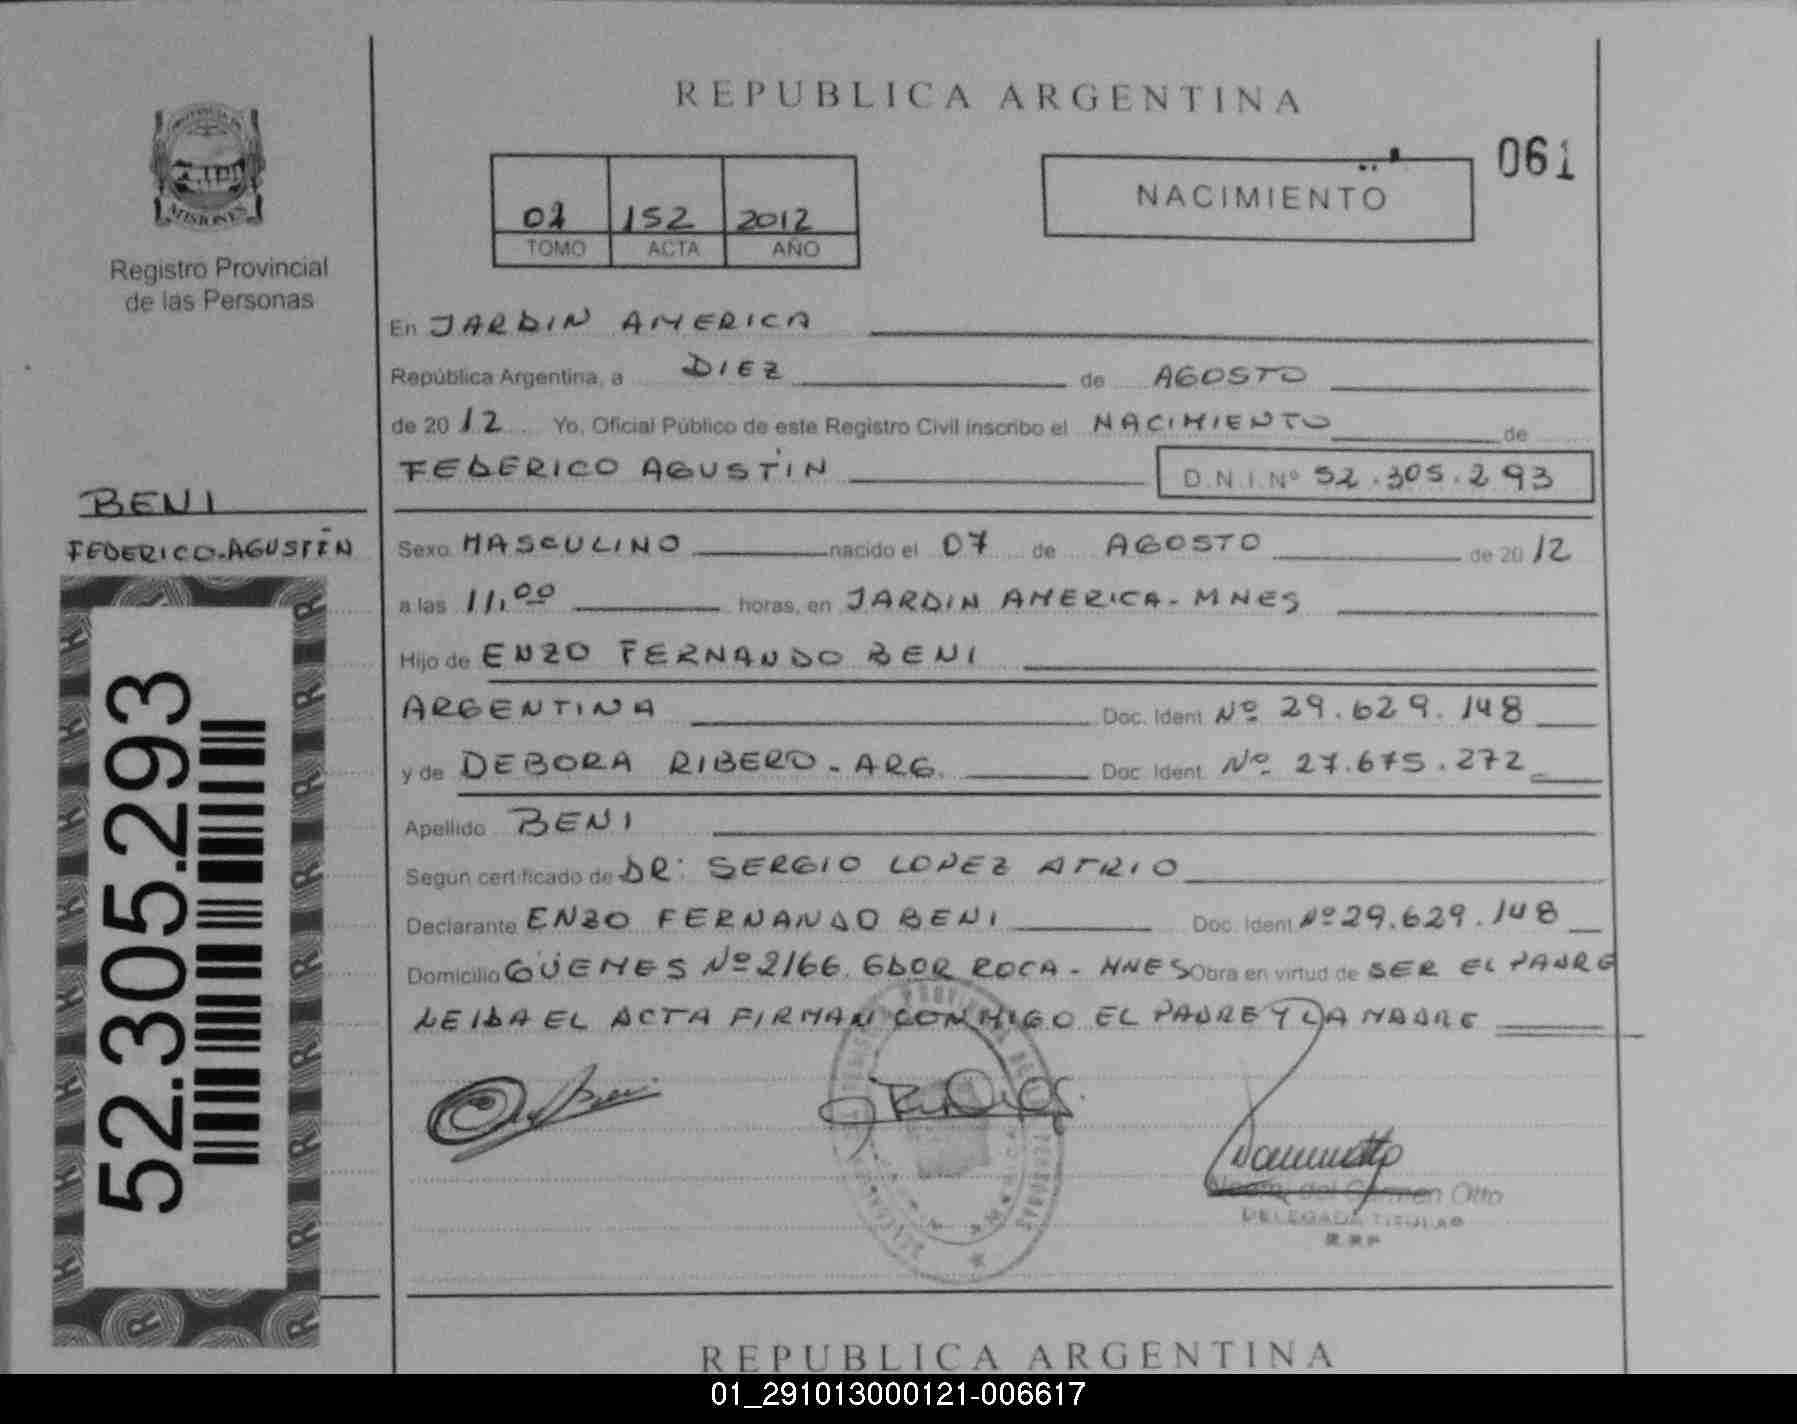 REPUBLICA ARGENTINA
061
NACIMIENTO
152 2012
TOMO ACTA AÑO
MISIONES
Registro Provincial
de las Personas
En JARDIN AMERICA
República Argentina, a DIEZ de AGOSTO
de 2012 Yo, Oficial Público de este Registro Civil inscribo el NACIMIENTO de
FEDERICO AGUSTÍN D.N.I. Nº 52.305.293
BENI
FEDERICO-AGUSTÍN
52.305.293
Sexo MASCULINO nacido el 07 de AGOSTO de 2012
a las 11,00 horas, en JARDIN AMERICA - MNES
Hijo de ENZO FERNANDO BENI
ARGENTINA Doc. Ident. Nº 29.629.148
y de DEBORA RIBERO - ARG. Doc. Ident. Nº 27.675.272
Apellido BENI
Según certificado de DR: SERGIO LOPEZ ATRIO
Declarante ENZO FERNANDO BENI Doc. Ident. Nº 29.629.148
Domicilio GÜEMES Nº 2166. GDOR ROCA - MNES Obra en virtud de SER EL PADRE
LEIDA EL ACTA FIRMAN CONMIGO EL PADRE Y LA MADRE
del Carmen Otto
DELEGADA TITULAR
REPUBLICA ARGENTINA
01_291013000121-006617